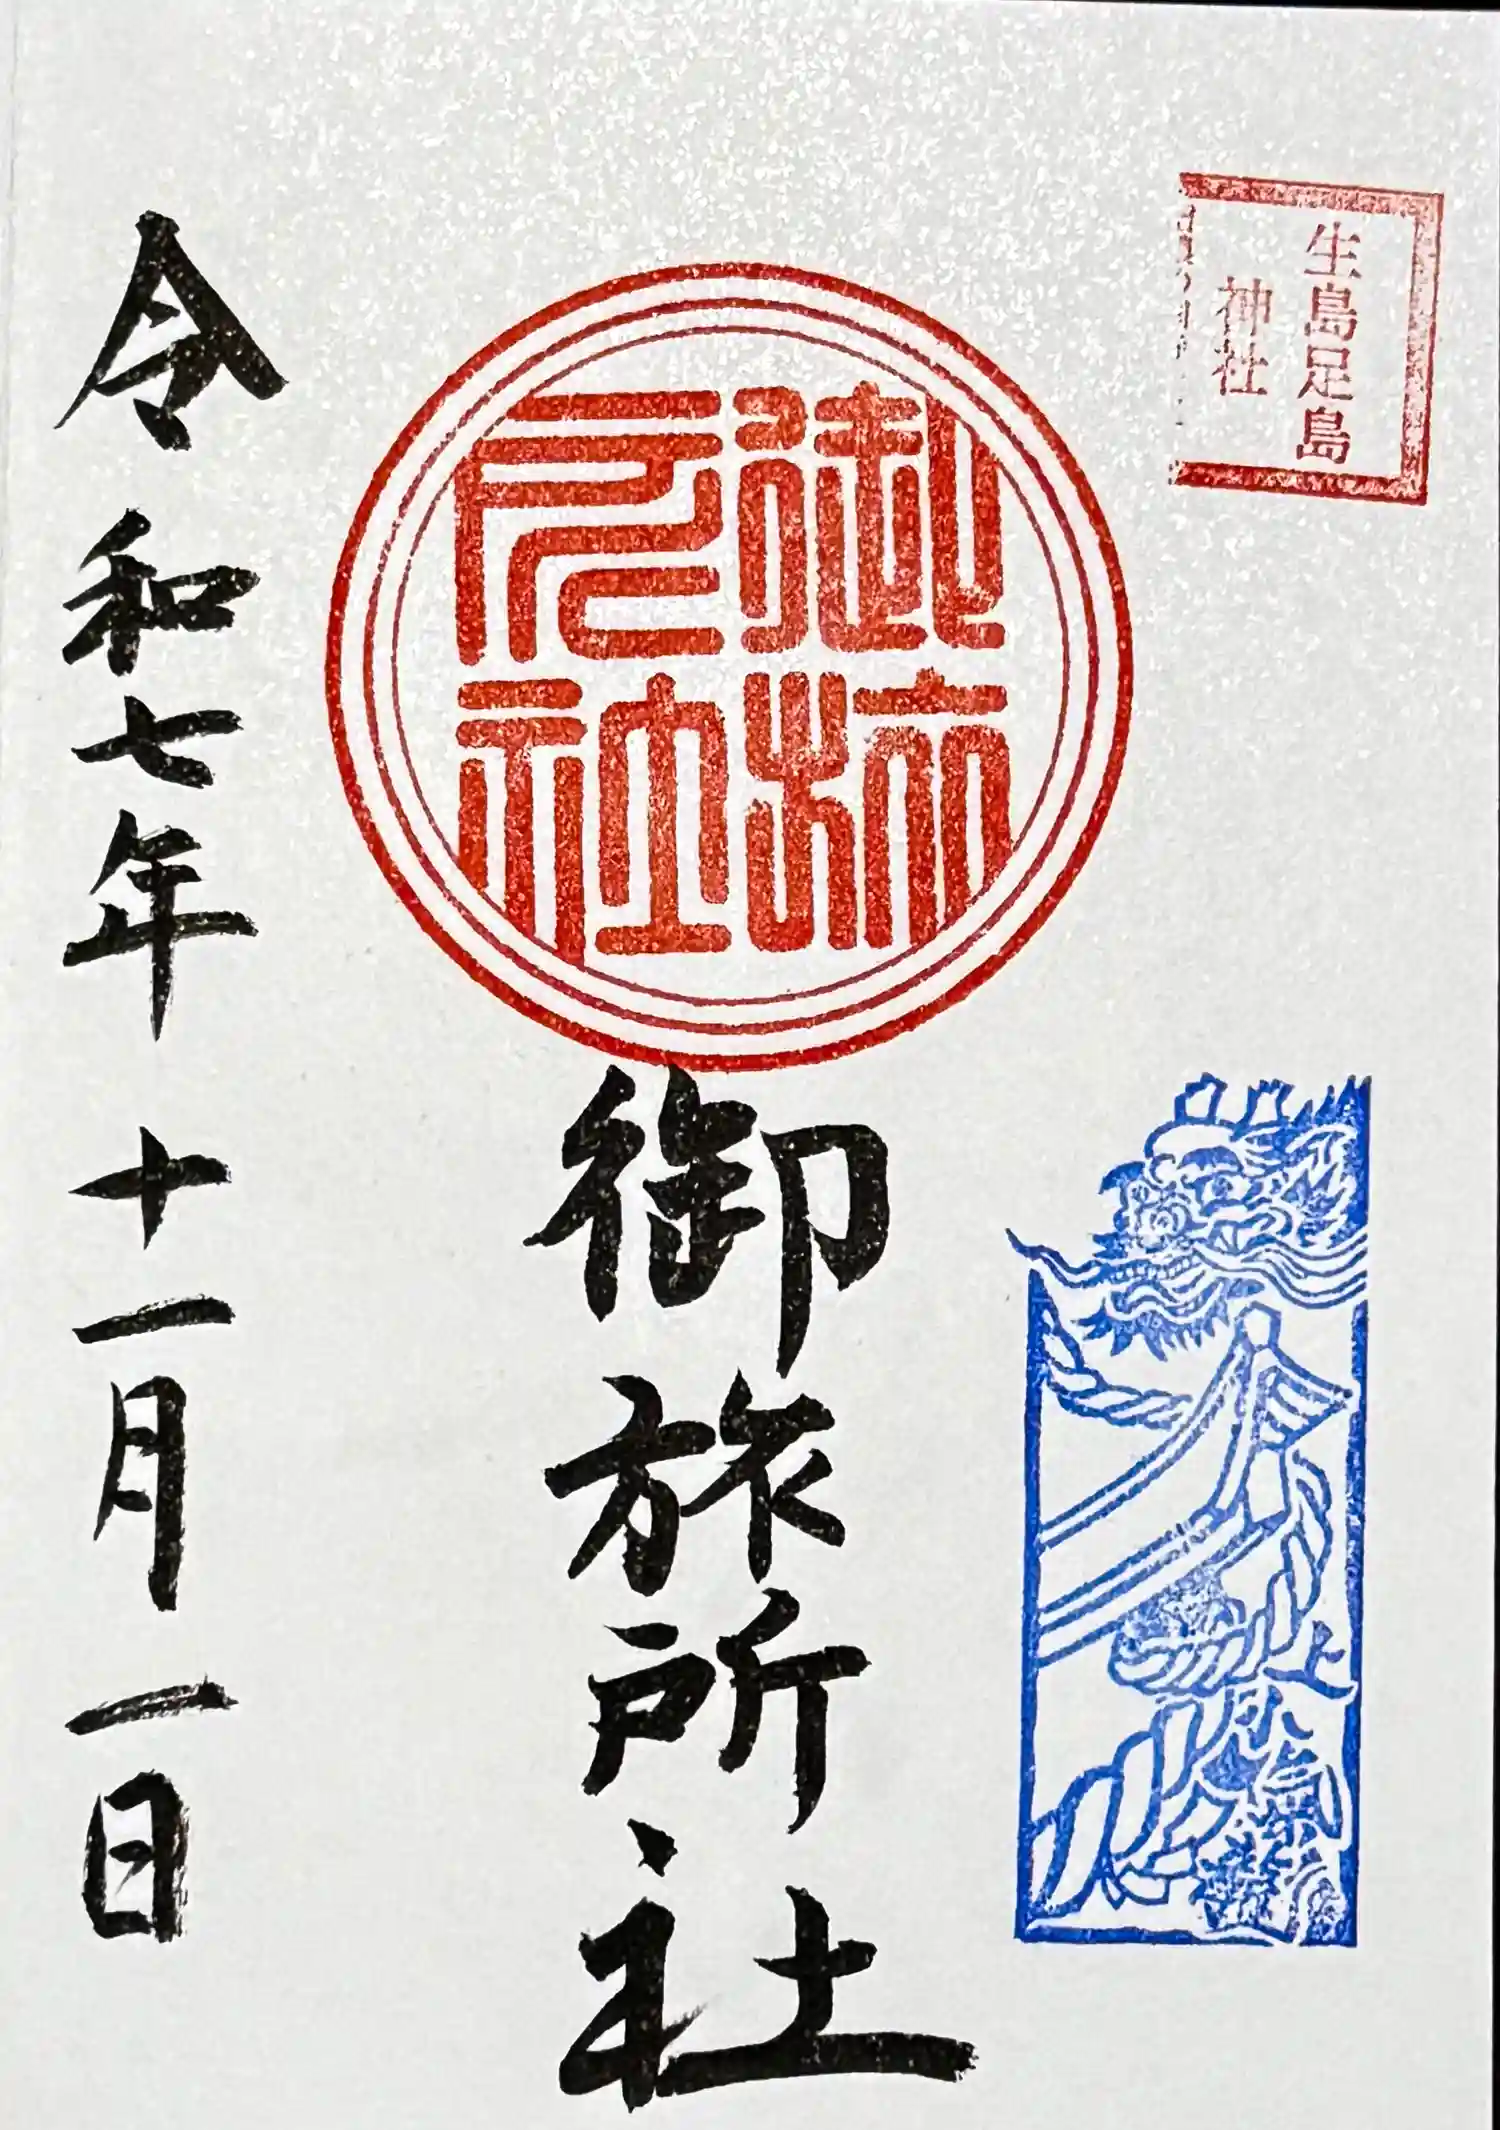 生島足島
神社
御旅
所社
上小氣龍
御旅所社
令和七年十一月一日